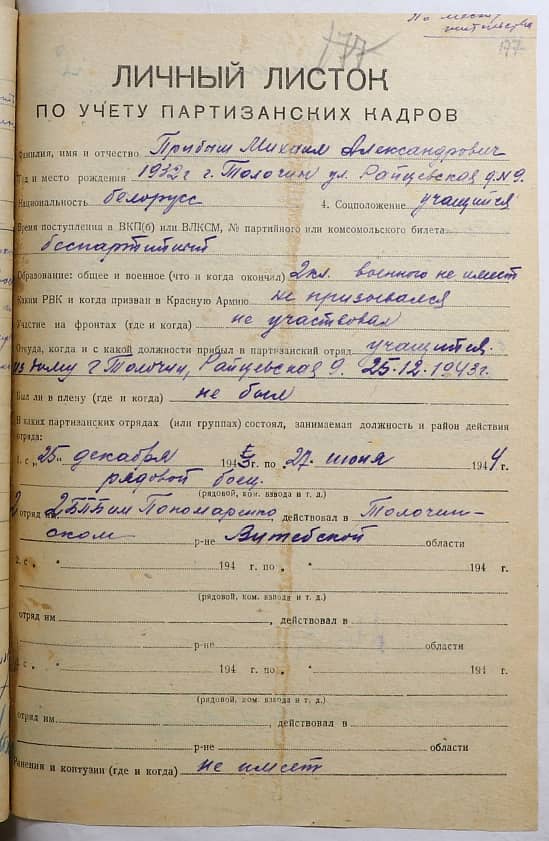 По месту
жительства
177
177
ЛИЧНЫЙ ЛИСТОК
ПО УЧЕТУ ПАРТИЗАНСКИХ КАДРОВ
Фамилия, имя и отчество Прибыш Михаил Александрович
Год и место рождения 1932 г г. Толочин ул. Райцевская д. №9.
Национальность белорусс 4. Соцположение учащийся
Время поступления в ВКП(б) или ВЛКСМ, № партийного или комсомольского билета
беспартийный
Образование: общее и военное (что и когда окончил) 2 кл. военного не имеет
Каким РВК и когда призван в Красную Армию не призывался
Участие на фронтах (где и когда) не участвовал
Откуда, когда и с какой должности прибыл в партизанский отряд учащийся.
из дому г Толочин, Райцевская 9. 25.12.1943 г.
Был ли в плену (где и когда) не был
В каких партизанских отрядах (или группах) состоял, занимаемая должность и район действия
отряда:
1. с „25" декабря 1943 г. по 27. июня 1944 г.
рядовой боец.
(рядовой, ком. взвода и т. д.)
2 отряд 2 БПБим Пономаренко, действовал в Толочин-
ском р-не Витебской области
2. с „ " 194 г. по „ " 194 г.
(рядовой, ком. взвода и т. д.)
отряд им , действовал в
р-не области
с „ " 194 г. по „ " 194 г.
(рядовой, ком. взвода и т. д.)
отряд им , действовал в
р-не области
Ранения и контузии (где и когда) не имеет